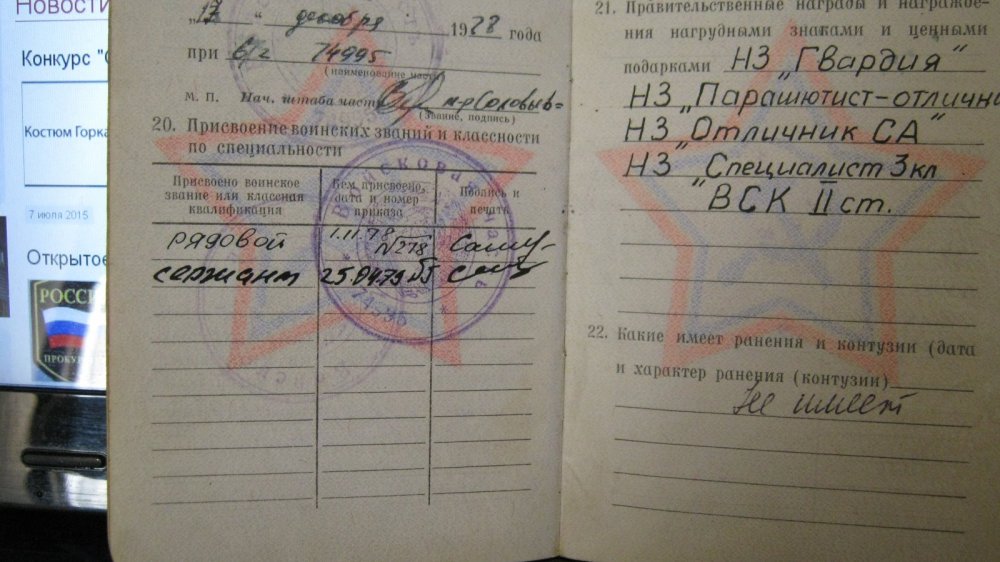 Новости
Конкурс "С
Костюм Горка
7 июля 2015
Открытое
РОССИ
ПРОКУ
"17" декабря 1978 года
при в/ч 74995
(наименование части)
М. П. Нач. штаба части м-р Соловьев
(звание, подпись)
20. Присвоение воинских званий и классности
по специальности
Присвоено воинское звание или классная квалификация
Кем присвоено, дата и номер приказа
Подпись и печать
рядовой 1.11.78 №278
сержант 25.04.79
Войсковая часть
21. Правительственные награды и награжде-
ния нагрудными знаками и ценными
подарками НЗ „Гвардия“
НЗ „Парашютист-отлични
НЗ „Отличник СА“
НЗ „Специалист 3кл
"ВСК II ст.
22. Какие имеет ранения и контузии (дата
и характер ранения (контузии)
Не имеет